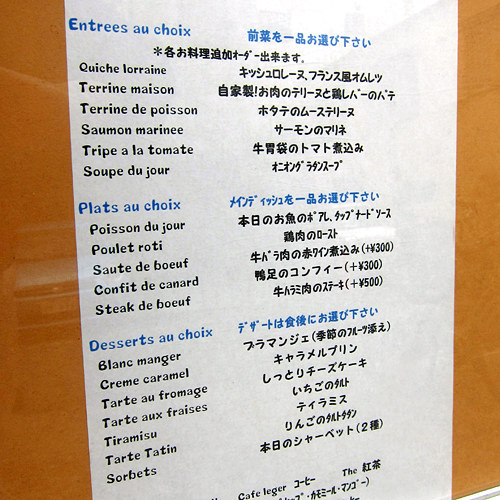 Entrees au choix 前菜を一品お選び下さい
＊各お料理追加ｵｰﾀﾞｰ出来ます。
Quiche lorraine キッシュロレーヌ、フランス風オムレツ
Terrine maison 自家製!お肉のテリーヌと鶏レバーのパテ
Terrine de poisson ホタテのムーステリーヌ
Saumon marinee サーモンのマリネ
Tripe a la tomate 牛胃袋のトマト煮込み
Soupe du jour ｵﾆｵﾝｸﾞﾗﾀﾝｽｰﾌﾟ
Plats au choix ﾒｲﾝﾃﾞｨｯｼｭを一品お選び下さい
Poisson du jour 本日のお魚のﾎﾟｱﾚ、ﾀｯﾌﾟﾅｰﾄﾞｿｰｽ
Poulet roti 鶏肉のﾛｰｽﾄ
Saute de boeuf 牛バラ肉の赤ﾜｲﾝ煮込み(+¥300)
Confit de canard 鴨足のコンフィー(+¥300)
Steak de boeuf 牛ﾊﾗﾐ肉のｽﾃｰｷ(+¥500)
Desserts au choix ﾃﾞｻﾞｰﾄは食後にお選び下さい
Blanc manger ブラマンジェ(季節のﾌﾙｰﾂ添え)
Creme caramel キャラメルプリン
Tarte au fromage しっとりチーズケーキ
Tarte aux fraises いちごのﾀﾙﾄ
Tiramisu ティラミス
Tarte Tatin りんごのﾀﾙﾄﾀﾀﾝ
Sorbets 本日のシャーベット(２種)
Cafe leger コーヒー The 紅茶
・カモミール・マンゴー)